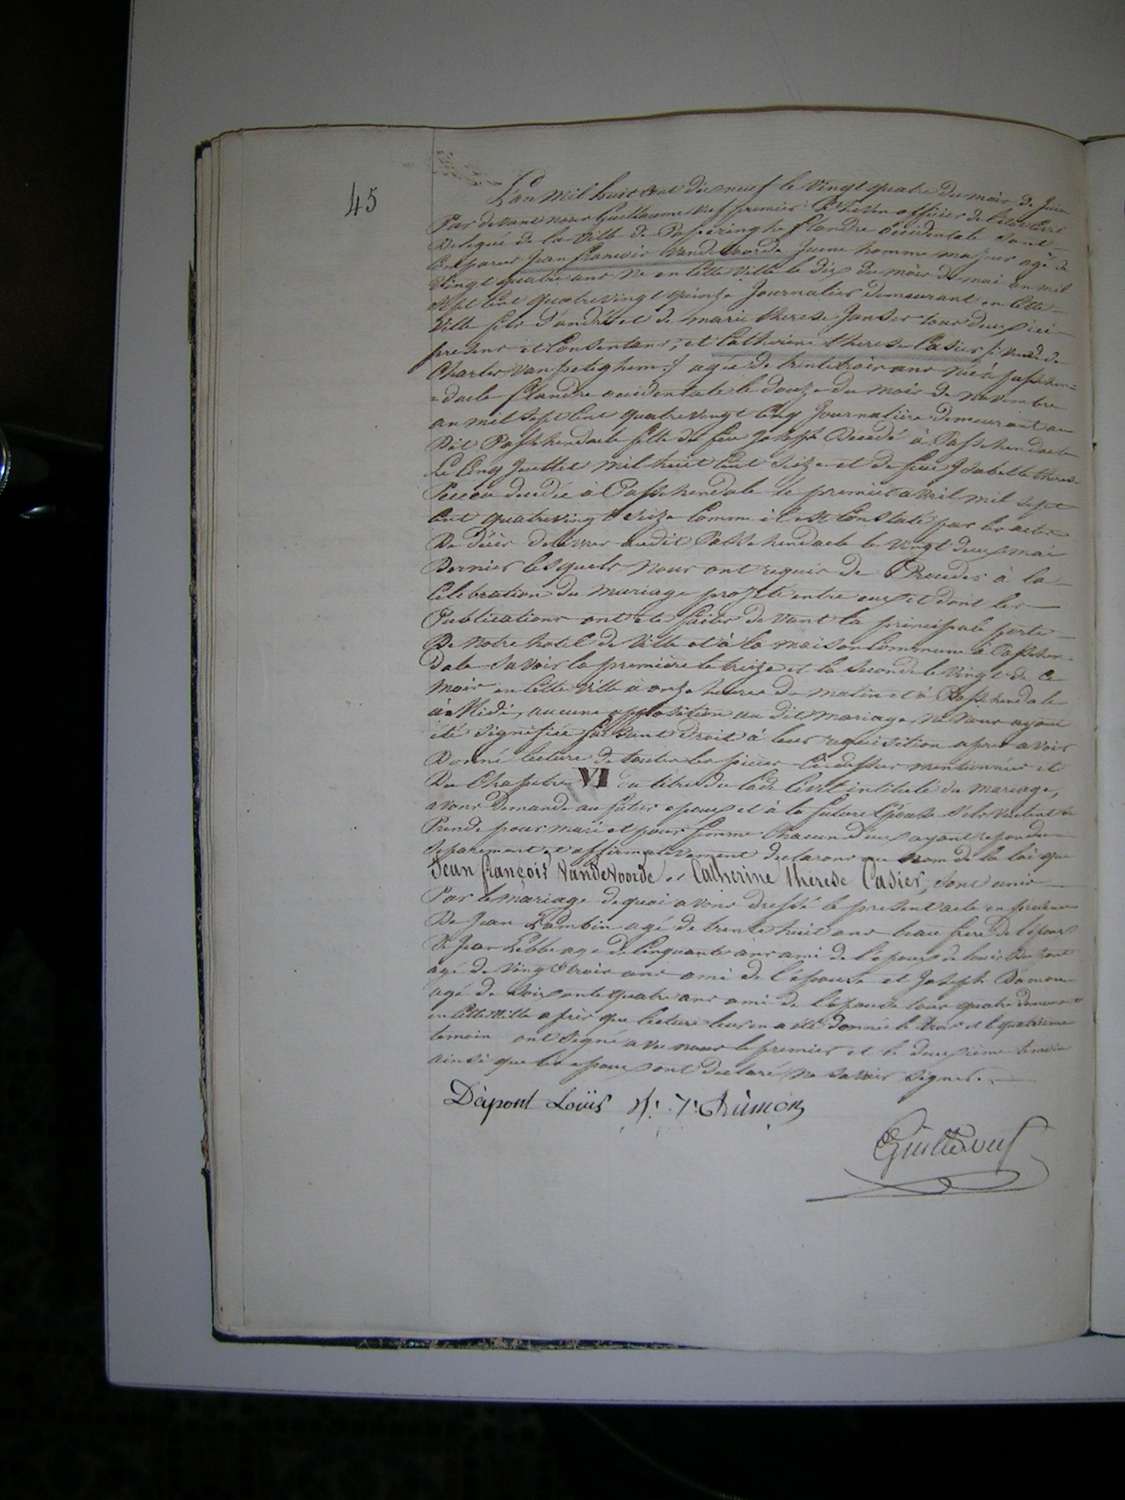 45
L'an mil huit cent dix neuf le vingt quatre du mois de juin
Par devant nous Guillaume Veuf premier Echevin officier de l'état civil
délégué de la Ville de Poperinghe flandre occidentale sont
comparus Jean françois Vandevoorde Jeune homme majeur agé de
Vingt quatre ans né en cette Ville le dix du mois de mai an mil
Sept Cent quatre vingt quinze Journalier demeurant en cette
Ville fils d'andré et de marie therese Janser tous deux ici
presens et Consentans; et Catherine therese Casier (: veuve de
Charles van peteghem :) agée de trente trois ans née à passchen
daele flandre occidentale le douze du mois de novembre
an mil sept Cent quatre vingt Cinq Journalière demeurant au
Dit Passchendaele fille de feu Joseph Decedé à Passchendaele
Le Cinq Juillet mil huit Cent Seize et de feue Isabelle therese
decedée à Passchendaele le premier avril mil sept
Cent quatre vingt Seize Comme il est Constaté par les actes
De décès délivrés audit Passchendaele le Vingt deux mai
Dernier lesquels nous ont requis de Proceder à la
Célébration du mariage projeté entre eux et dont les
Publications ont été faites devant la principale porte
De notre hotel de Ville et à la maison Commune à Passchen
dale Savoir la première le treize et la seconde le Vingt de Ce
mois en Cette Ville à onze heures du matin et à Passchendale
à Midi, aucune opposition au dit mariage ne nous ayant
été signifiée faisant droit à leur requisition apres avoir
Donné lecture de toutes les pièces Ci dessus mentionnées et
Du Chapitre VI du titre du Code Civil intitulé du mariage,
avons demandé au futur epoux et à la future Epouse s'ils veulent se
Prendre pour mari et pour femme Chacun d'eux ayant repondu
Séparement et affirmativement declarons au nom de la loi que
Jean françois Vandevoorde et Catherine thérese Casier, sont unis
Par le mariage de quoi avons dressé le present acte en presence
De Jean Lambin agé de trente huit ans beau frère de l'epoux
De Lebbe agé de Cinquante ans ami de l'epoux de Louis Dépont
agé de Vingt trois ans ami de l'epouse et Joseph
agé de Soixante quatre ans ami de l'epouse tous quatre demeurant
en Cette Ville apres que lecture leur en a été donnée le trois et le quatrieme
temoin ont signé avec nous le premier et le deuxième temoin
ainsi que les epoux ont declaré ne savoir signer.
Dépont Louis